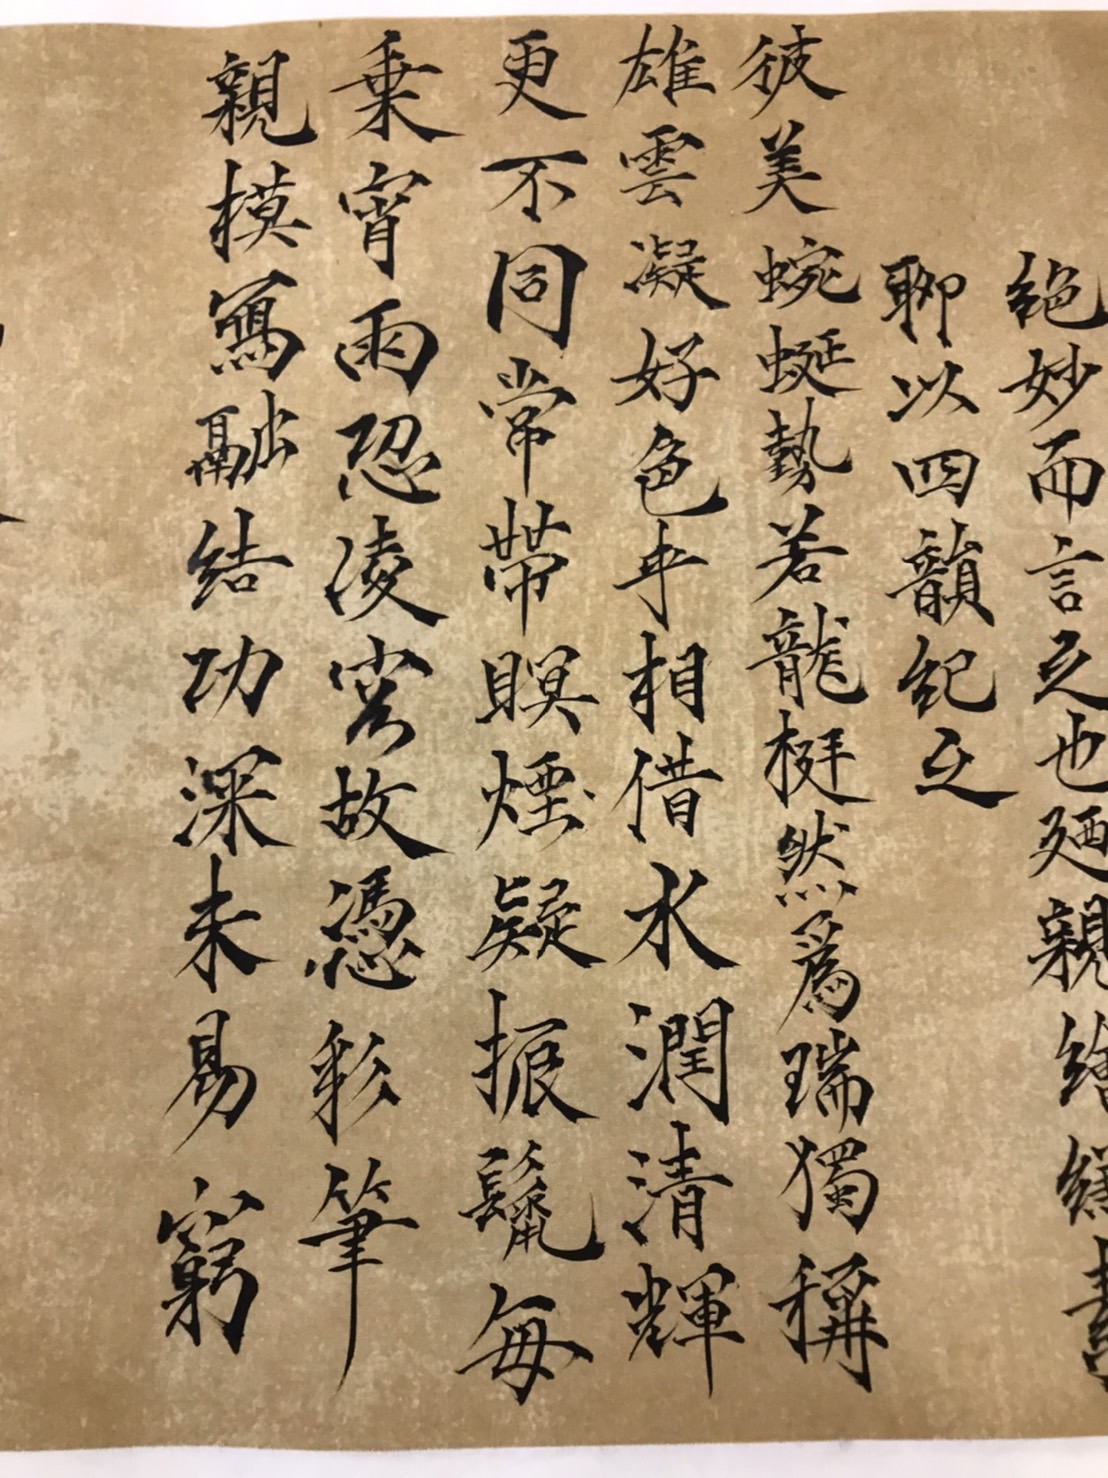 絶妙而言之也廼親繪縑素
聊以四韻紀之
彼美蜿蜒勢若龍挺然爲瑞獨稱
雄雲凝好色乎相借水潤清輝
更不同常帶暝煙疑振鬣每
乗宵雨恐凌空故憑彩筆
親模寫融結功深未易窮